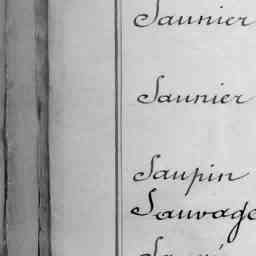 Saunier
Saunier
Saupin
Sauvage